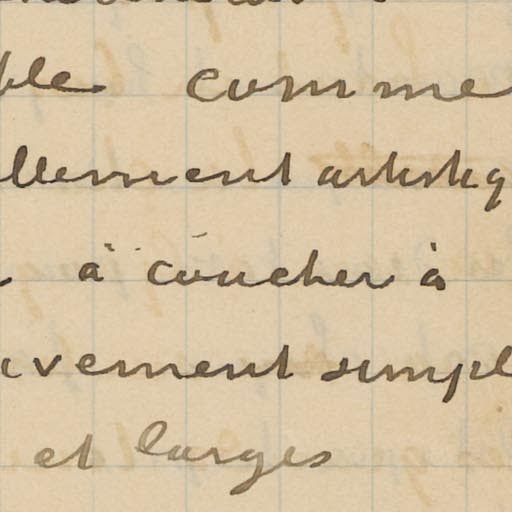 ble comme
llement artistiq
à coucher à
ivement simpl
et larges